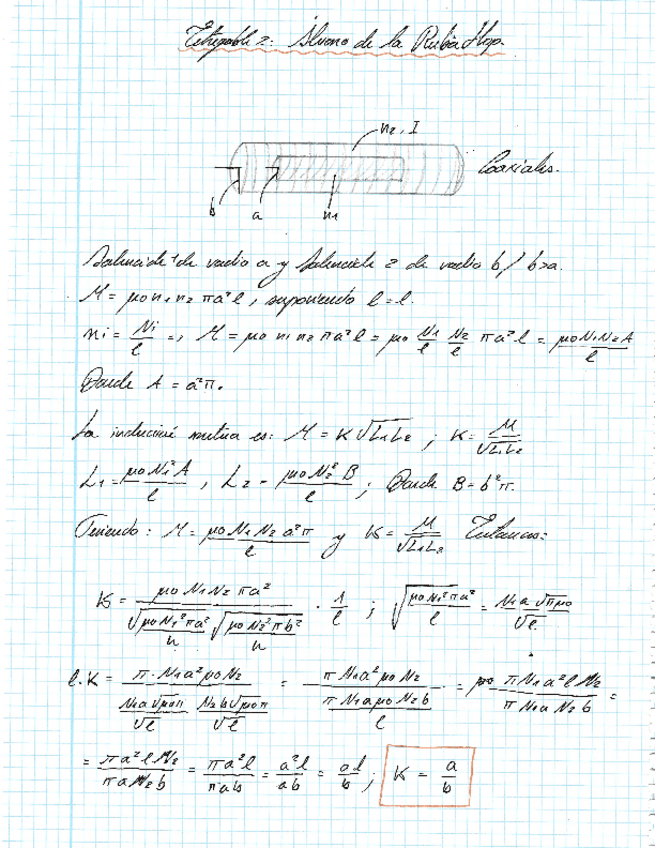 Entregable 2: Álvaro de la Rubia
n₂, I
Coaxiales.
b a n₁
Solenoide 1 de radio a y solenoide 2 de radio b / b>a.
M = μ₀ n₁ n₂ π a² l, suponiendo l = l.
nᵢ = Nᵢ/l => M = μ₀ n₁ n₂ π a² l = μ₀ N₁/l N₂/l π a² l = μ₀ N₁ N₂ A / l
Donde A = a² π.
La inducción mutua es: M = K √L₁L₂ ; K = M/√L₁L₂
L₁ = μ₀ N₁² A / l , L₂ = μ₀ N₂² B / l ; Donde B = b² π.
Teniendo: M = μ₀ N₁ N₂ a² π / l y K = M/√L₁L₂ Entonces:
K = μ₀ N₁ N₂ π a² / (√(μ₀ N₁² π a² / n) √(μ₀ N₂² π b² / n)) · 1/l ; √(μ₀ N₁² π a² / l) = N₁ a √πμ₀ / √l
l·K = π · N₁ a² μ₀ N₂ / (N₁ a √μ₀π / √l · N₂ b √μ₀π / √l) = π N₁ a² μ₀ N₂ / (π N₁ a μ₀ N₂ b / l) = μ₀ π N₁ a² l N₂ / π N₁ a N₂ b =
= π a² l N₂ / π a N₂ b = π a² l / π a b = a² l / a b = a l / b ; K = a/b